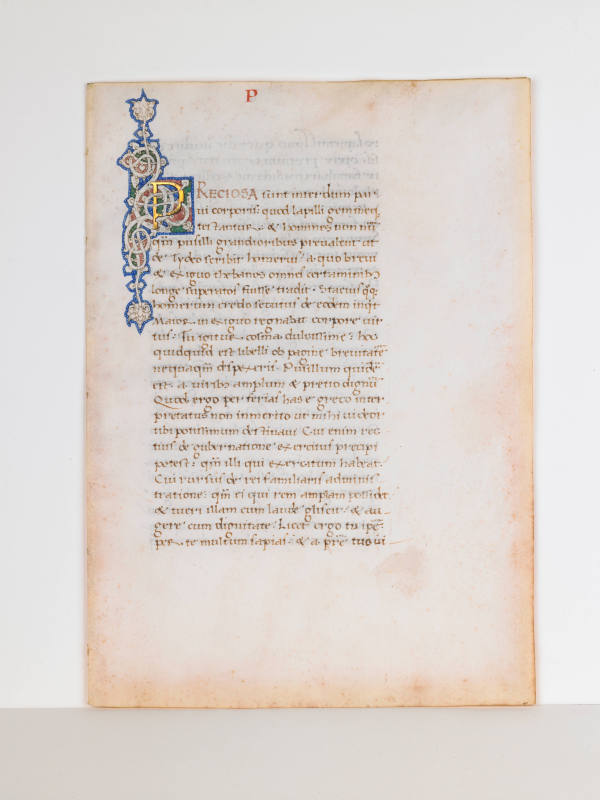 P
PRECIOSA sunt interdum par
ui corporis: quod lapilli gemmeq;
testantur. & homines non nũ
q̃m pusilli grandioribus preualent ut
de Tydeo scribit homerus: a quo breui
& exiguo thebanos omnes certaminibꝰ
longe superatos fuisse tradit. Statius q̃;
homerum credo secutus de eodem inqt
Maior in exiguo regnabat corpore uir
tus. Tu igitur cosma dulcissime: hoc
quidquid est libelli ob pagine breuitatẽ
nequaq̃m dispexeris. Pusillum quidẽ
est. a uiribꝰ amplum & pretio dignũ
Quod ergo per ferias has e greco inter
pretatus non inmerito ut mihi uideor
tibi potissimum destinaui. Cui enim rec
tius de gubernatione exercitus precipi
potest: q̃m illi qui exercitum habeat.
Cui rursus de rei familiaris adminis
tratione: q̃m ei qui rem amplam possidet
& tueri illam cum laude gliscit. & au
gere cum dignitate. Licet ergo tu ip̃e:
per te multum sapias: & a pr̃e tuo ui